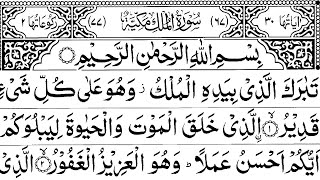 اٰیَاتُهَا ٣٠ (٦٧) سُوْرَةُ الْمُلْكِ مَكِّیَّةٌ (٧٧) رُكُوْعَاتُهَا ٢
بِسْمِ اللّٰهِ الرَّحْمٰنِ الرَّحِیْمِ
تَبٰرَكَ الَّذِیْ بِیَدِهِ الْمُلْكُ ز وَهُوَ عَلٰی كُلِّ شَیْءٍ
قَدِیْرُ ۙ﴿١﴾ الَّذِیْ خَلَقَ الْمَوْتَ وَالْحَیٰوةَ لِیَبْلُوَكُمْ
اَیُّكُمْ اَحْسَنُ عَمَلًا ؕ وَهُوَ الْعَزِیْزُ الْغَفُوْرُ ۙ﴿٢﴾ الَّذِیْ